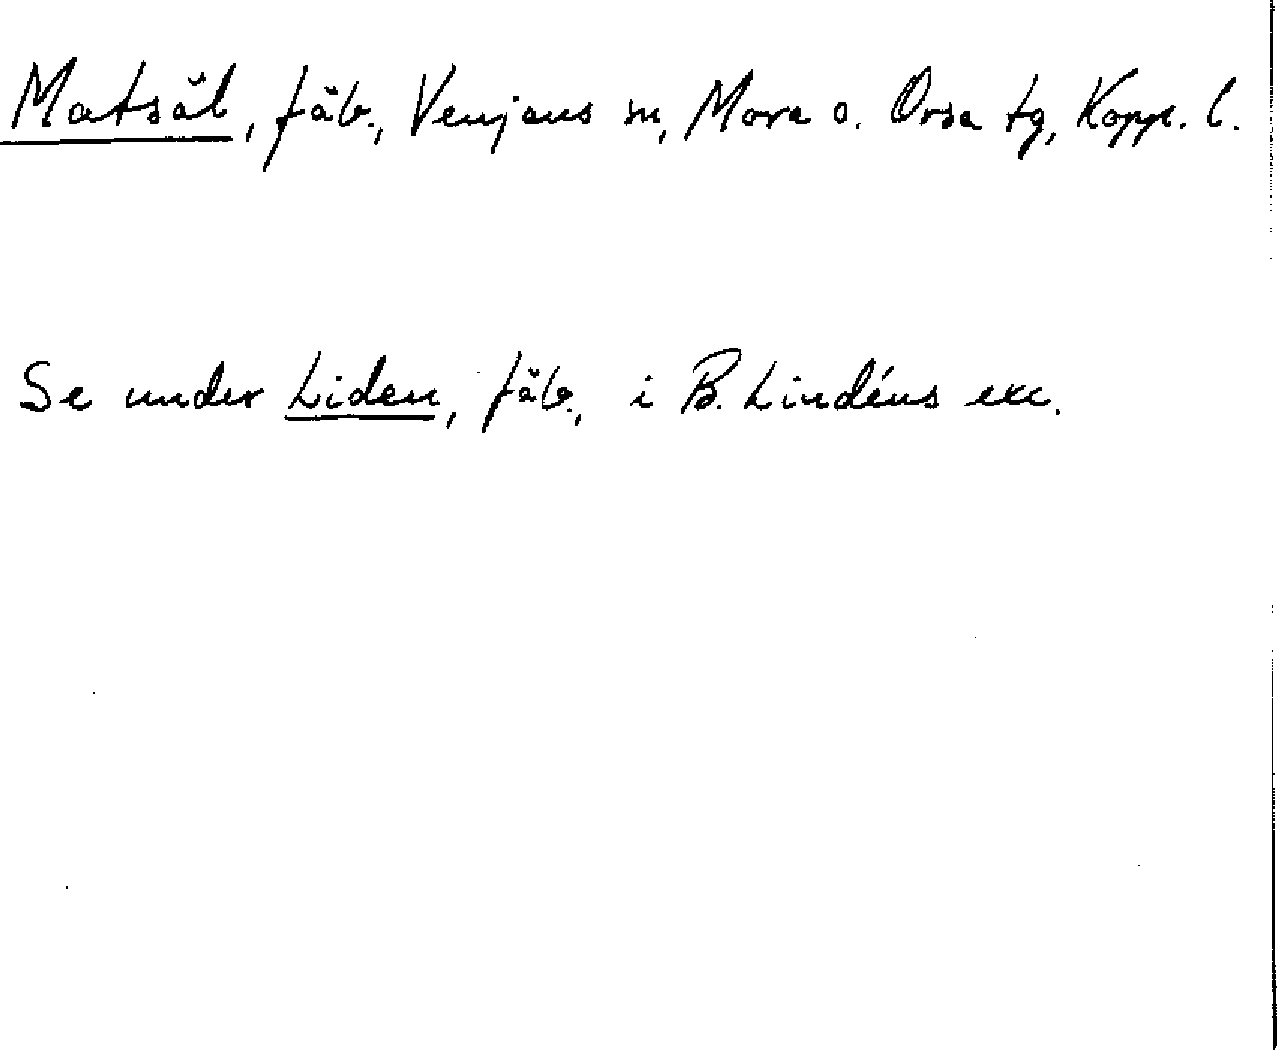 Matsäl, fäb., Venjans sn, Mora o. Orsa tg, Kopp. l.
Se under Liden, fäb., i B. Lindéns exc.